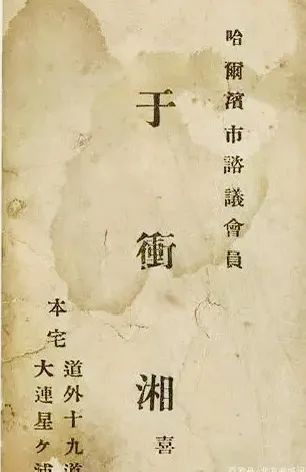 哈爾濱市諮議會員
于衝湘
喜
本宅
道外十九道
大連星ケ浦